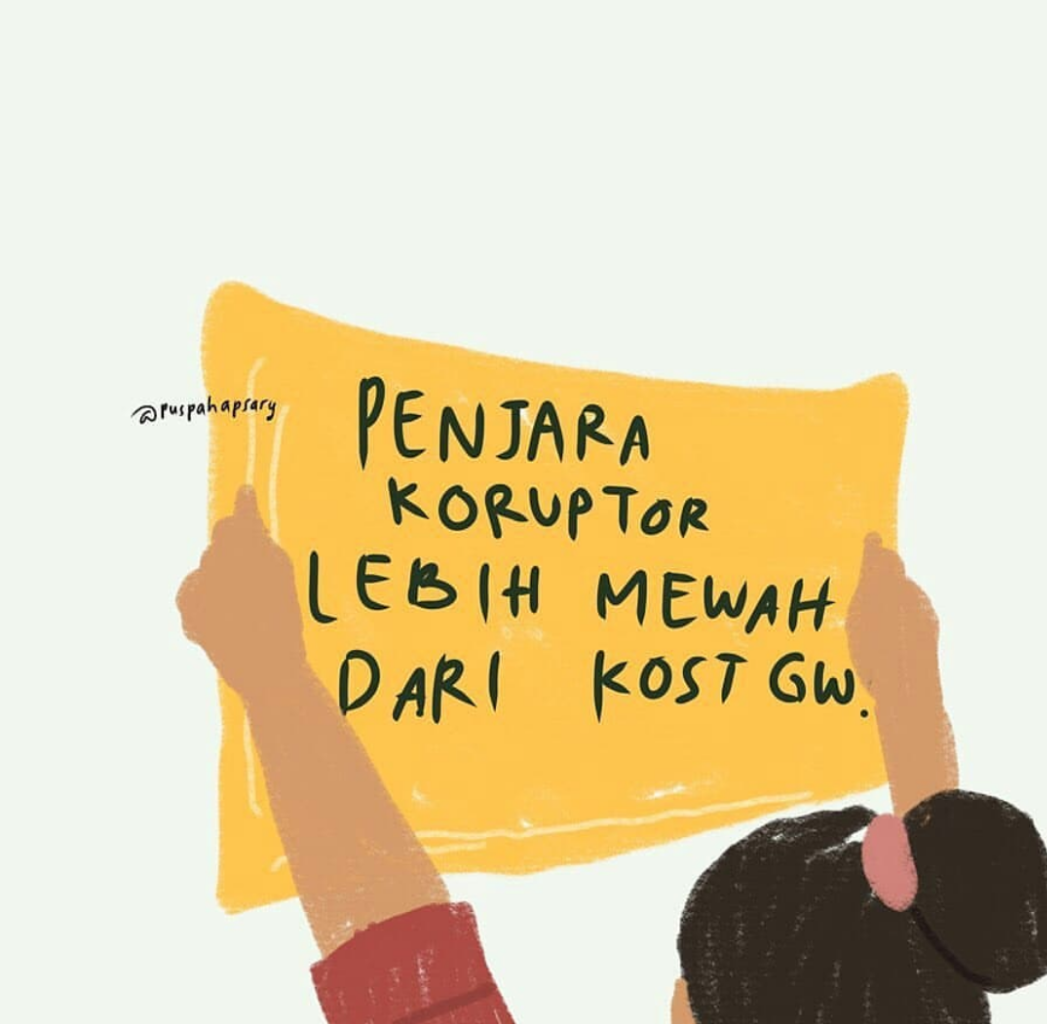 @puspahapsary
PENJARA
KORUPTOR
LEBIH MEWAH
DARI KOST GW.